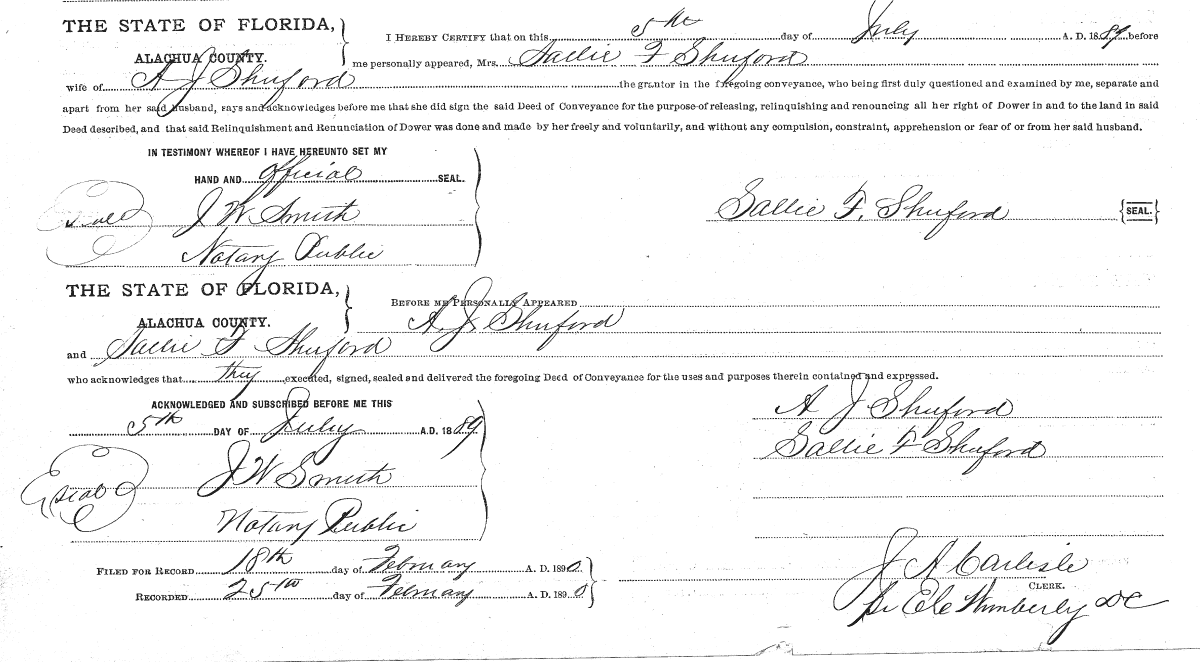 THE STATE OF FLORIDA,
ALACHUA COUNTY.
I HEREBY CERTIFY that on this 5th day of July A. D. 1889 before
me personally appeared, Mrs. Sallie F Shuford
wife of A J Shuford the grantor in the foregoing conveyance, who being first duly questioned and examined by me, separate and
apart from her said husband, says and acknowledges before me that she did sign the said Deed of Conveyance for the purpose of releasing, relinquishing and renouncing all her right of Dower in and to the land in said
Deed described, and that said Relinquishment and Renunciation of Dower was done and made by her freely and voluntarily, and without any compulsion, constraint, apprehension or fear of or from her said husband.
IN TESTIMONY WHEREOF I HAVE HEREUNTO SET MY
HAND AND official SEAL.
Seal J W Smith
Notary Public
Sallie F. Shuford {SEAL.}
THE STATE OF FLORIDA,
ALACHUA COUNTY.
BEFORE ME PERSONALLY APPEARED
A. J. Shuford
and Sallie F Shuford
who acknowledges that they executed, signed, sealed and delivered the foregoing Deed of Conveyance for the uses and purposes therein contained and expressed.
ACKNOWLEDGED AND SUBSCRIBED BEFORE ME THIS
5th DAY OF July A.D. 1889
Seal J W Smith
Notary Public
A J Shuford
Sallie F Shuford
FILED FOR RECORD 18th day of February A. D. 1890.
RECORDED 25th day of February A. D. 1890
J A Carlisle
CLERK.
Wimberly DC